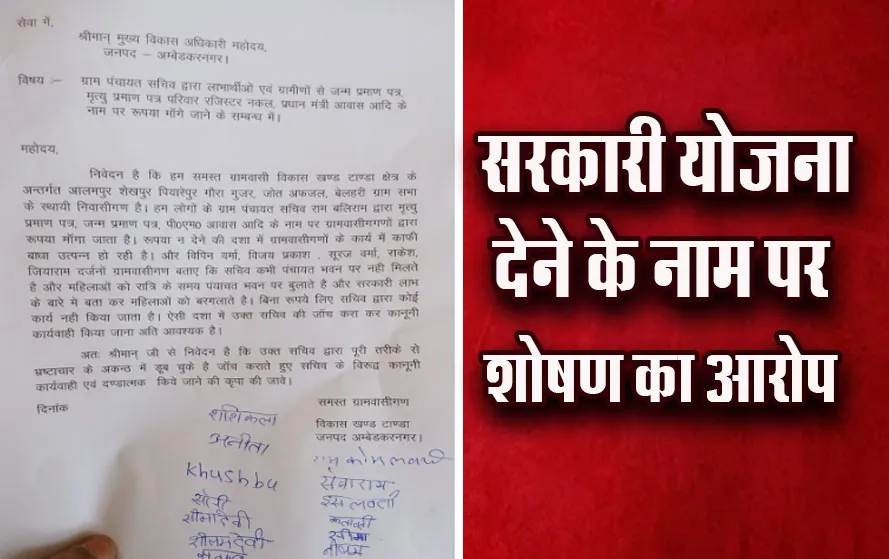 सेवा में,
श्रीमान् मुख्य विकास अधिकारी महोदय,
जनपद – अम्बेडकरनगर।
विषय :– ग्राम पंचायत सचिव द्वारा लाभार्थीओं एवं ग्रामीणों से जन्म प्रमाण पत्र,
मृत्यु प्रमाण पत्र परिवार रजिस्टर नकल, प्रधान मंत्री आवास आदि के
नाम पर रूपया माँगे जाने के सम्बन्ध में।
महोदय,
निवेदन है कि हम समस्त ग्रामवासी विकास खण्ड टाण्डा क्षेत्र के
अन्तर्गत आलमपुर शेखपुर पियारेपुर गौरा गुजर, जोत अफजल, बेलहरी ग्राम सभा
के स्थायी निवासीगण है। हम लोगों के ग्राम पंचायत सचिव राम बलिराम द्वारा मृत्यु
प्रमाण पत्र, जन्म प्रमाण पत्र, पी०एम० आवास आदि के नाम पर ग्रामवासीगणों द्वारा
रूपया माँगा जाता है। रूपया न देने की दशा में ग्रामवासीगणों के कार्य में काफी
बाधा उत्पन्न हो रही है। और विपिन वर्मा, विजय प्रकाश , सूरज वर्मा, राकेश,
जियाराम दर्जनों ग्रामवासीगण बताए कि सचिव कभी पंचायत भवन पर नही मिलते
है और महिलाओं को रात्रि के समय पंयाचत भवन पर बुलाते है और सरकारी लाभ
के बारे मे बता कर महिलाओं को बरगलाते है। बिना रूपये लिए सचिव द्वारा कोई
कार्य नही किया जाता है। ऐसी दशा में उक्त सचिव की जाँच करा कर कानूनी
कार्यवाही किया जाना अति आवश्यक है।
अतः श्रीमान् जी से निवेदन है कि उक्त सचिव द्वारा पूरी तरीके से
भ्रष्टाचार के अकन्ठ में डूब चुके है जाँच कराते हुए सचिव के विरूद्ध कानूनी
कार्यवाही एवं दण्डात्मक किये जाने की कृपा की जावे।
दिनांक
समस्त ग्रामवासीगण
विकास खण्ड टाण्डा
जनपद अम्बेडकरनगर।
शशिकला
अनीता
Khushbu
सेवाराम
सीमादेवी
शीलमदेवी
सरकारी योजना
देने के नाम पर
शोषण का आरोप